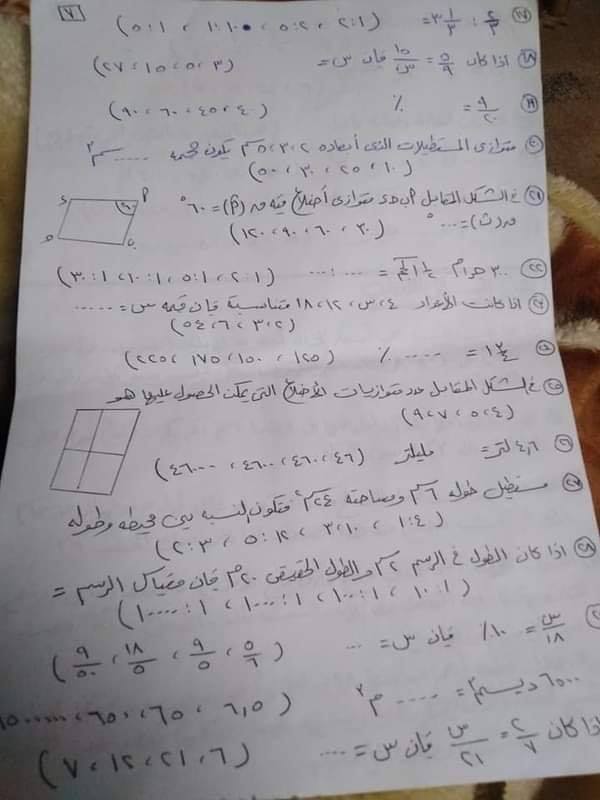 ٧
(١٧) ٢/٣ : ٣ ١/٣ = (٢:١ ، ٥:٢ ، ١:١٠ ، ٥:١)
(١٨) اذا كان ٥/٩ = ١٥/س فإن س = (٣ ، ٥ ، ١٥ ، ٢٧)
(١٩) ٩/٢٠ = ٪ (٤ ، ٤٥ ، ٦٠ ، ٩٠)
متوازى المستطيلات الذى أبعاده ٢ ، ٣ ، ٥ سم يكون حجمه ..... سم٣
(١٠ ، ٢٥ ، ٣٠ ، ٥٠)
(٢١) فى الشكل المقابل متوازى أضلاع فيه = ٦٠°
= ....° (٣٠ ، ٦٠ ، ٩٠ ، ١٢٠)
(٢٢) ٣٠٠ جرام : ١ ١/٢ كجم = .... : .... (٢:١ ، ٥:١ ، ١٠:١ ، ٣٠:١)
اذا كانت الأعداد ٤ ، س ، ١٢ ، ١٨ متناسبة فإن قيمة س = .....
(٢ ، ٣ ، ٦ ، ٥٤)
١ ٣/٤ = ..... ٪ (١٢٥ ، ١٥٠ ، ١٧٥ ، ٢٢٥)
(٢٥) فى الشكل المقابل عدد متوازيات الأضلاع التى يمكن الحصول عليها هو
(٤ ، ٥ ، ٧ ، ٩)
٤,٦ لتر = مليلتر (٤٦ ، ٤٦٠ ، ٤٦٠٠ ، ٤٦٠٠٠)
(٢٧) مستطيل طوله ٦ سم ومساحته ٢٤ سم٢ فتكون النسبه بين محيطه وطوله
(١:٤ ، ٣:١٠ ، ٥:١٢ ، ٢:٣)
(٢٨) اذا كان الطول فى الرسم ٢ سم والطول الحقيقى ٢٠ م فإن مقياس الرسم =
(١:١٠ ، ١:١٠٠ ، ١:١٠٠٠ ، ١:١٠٠٠٠)
س/١٨ = ١٠٪ فإن س = ... (٥/٦ ، ٩/٥ ، ١٨/٥ ، ٩/٥٠)
٦٥٠٠ ديسم٣ = .... م٣ (٦,٥ ، ٦٥ ، ٦٥٠
اذا كان ٢/٧ = س/٢١ فإن س = .... (٦ ، ٢١ ، ١٢ ، ٧)